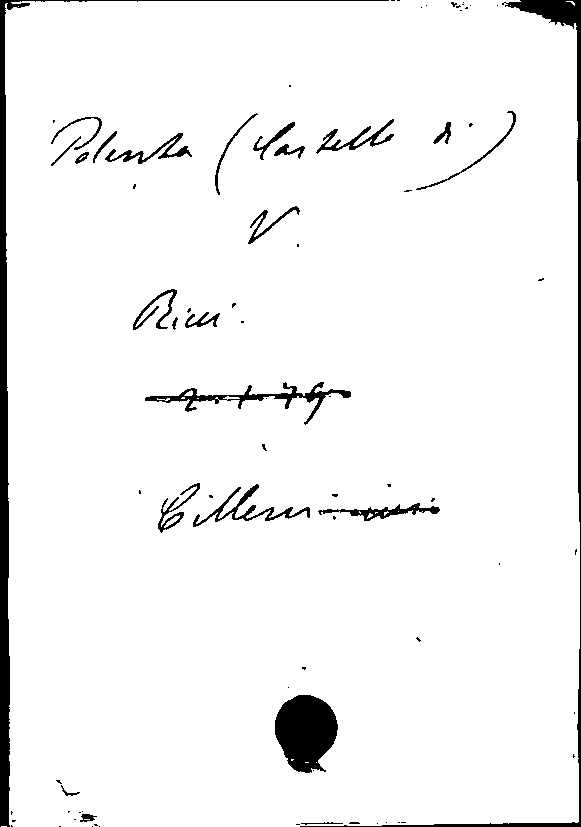 Polenta (Castello di)
V.
Ricci.
2. 1. 79
Cilleni